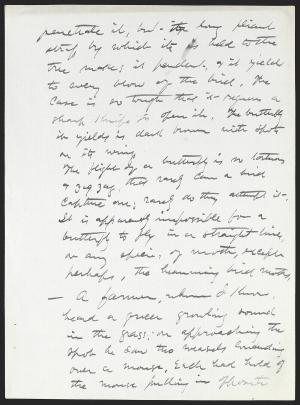 penetrate it, but the long pliant
strap by which it is held to the
tree makes it pendent, & it yields
to every blow of the bird. The
case is so tough that it requires a
sharp knife to open it. The butterfly
it yields is dark brown with spots
on its wing.
The flight of a butterfly is so tortuous
& zig zag, that rarely can a bird
capture one; rarely do they attempt it.
It is apparently impossible for a
butterfly to fly in a straight line,
or any species of moth, except
perhaps, the humming bird moths.
— A farmer, whom I know,
heard a queer growling sound
in the grass; on approaching the
spot he saw two weasels contending
over a mouse. Each had hold of
the mouse pulling in opposite